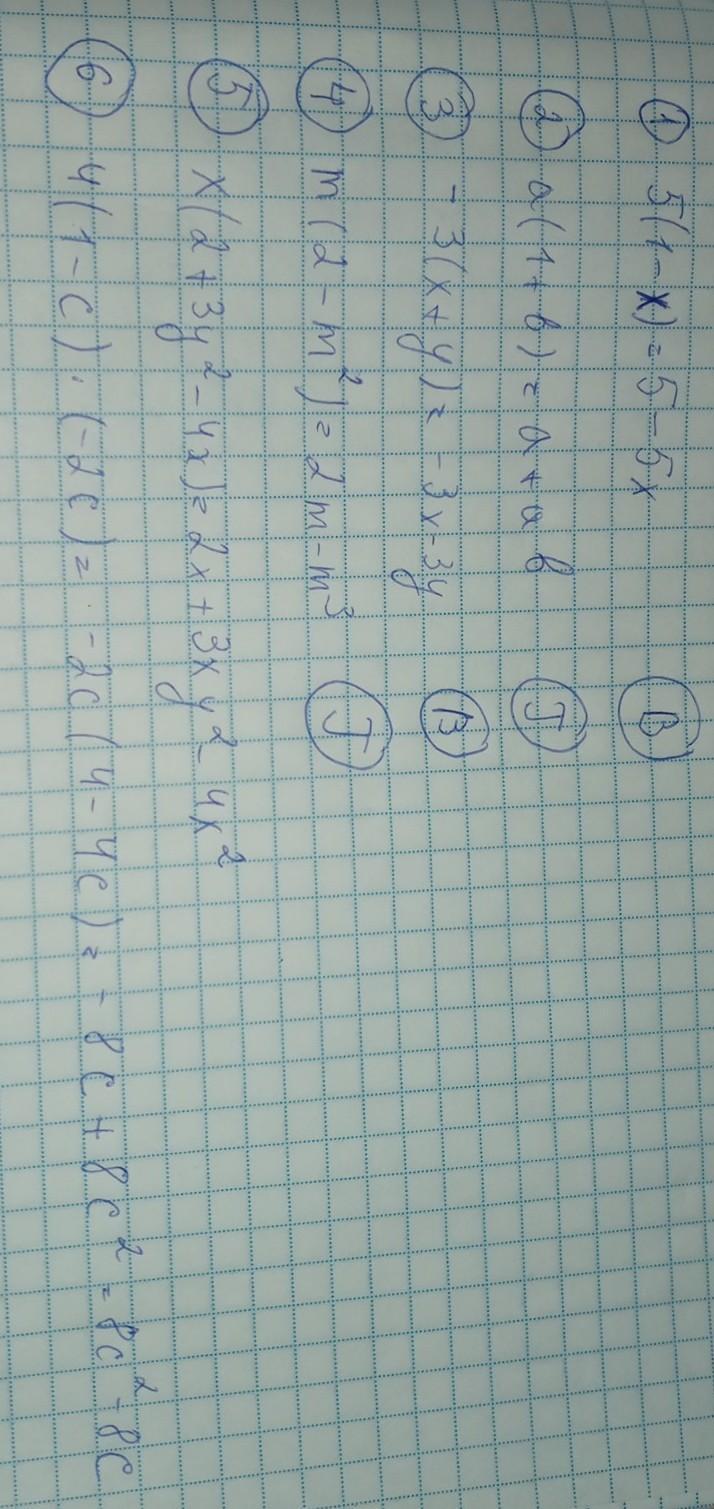 ① 5(1-x)=5-5x B
② a(1+b)=a+ab Г
③ -3(x+y)=-3x-3y B
④ m(2-m²)=2m-m³ Г
⑤ x(2+3y²-4x)=2x+3xy²-4x²
⑥ 4(1-c)·(-2c)=-2c(4-4c)=-8c+8c²=8c²-8c